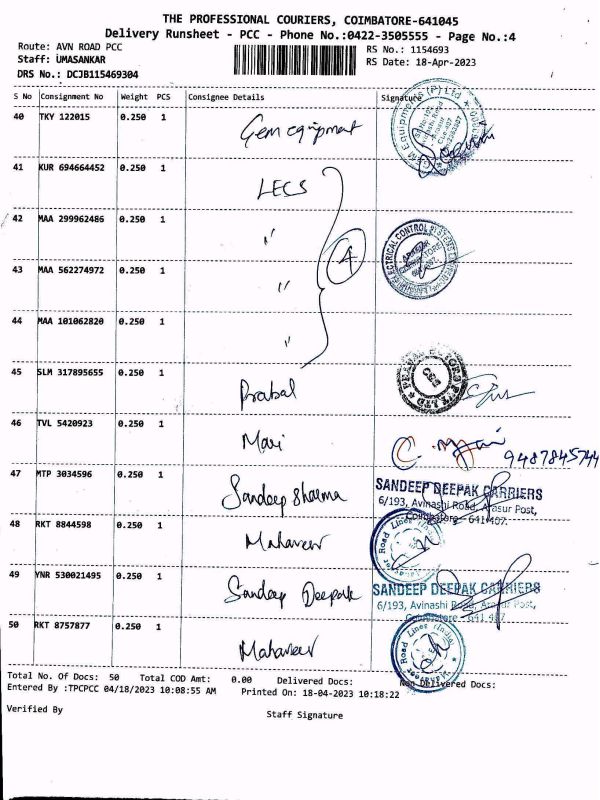 THE PROFESSIONAL COURIERS, COIMBATORE-641045
Delivery Runsheet - PCC - Phone No.:0422-3505555 - Page No.:4
Route: AVN ROAD PCC RS No.: 1154693
Staff: UMASANKAR RS Date: 18-Apr-2023
DRS No.: DCJB115469304
S No Consignment No Weight PCS Consignee Details Signature
40 TKY 122015 0.250 1 Gem equipment
41 KUR 694664452 0.250 1 LECS
42 MAA 299962486 0.250 1 "
43 MAA 562274972 0.250 1 " 4
44 MAA 101062820 0.250 1 "
45 SLM 317895655 0.250 1 Prabal
46 TVL 5420923 0.250 1 Mari 9487845744
47 MTP 3034596 0.250 1 Sandeep Sharma SANDEEP DEEPAK CARRIERS
6/193, Avinashi Road, Arasur Post,
Coimbatore - 641 407.
48 RKT 8844598 0.250 1 Mahaveer Road Lines
49 YNR 530021495 0.250 1 Sandeep Deepak SANDEEP DEEPAK CARRIERS
6/193, Avinashi Road, Arasur Post,
Coimbatore - 641 407
50 RKT 8757877 0.250 1 Mahaveer Road Lines (India)
Total No. Of Docs: 50 Total COD Amt: 0.00 Delivered Docs: Non Delivered Docs:
Entered By :TPCPCC 04/18/2023 10:08:55 AM Printed On: 18-04-2023 10:18:22
Verified By Staff Signature